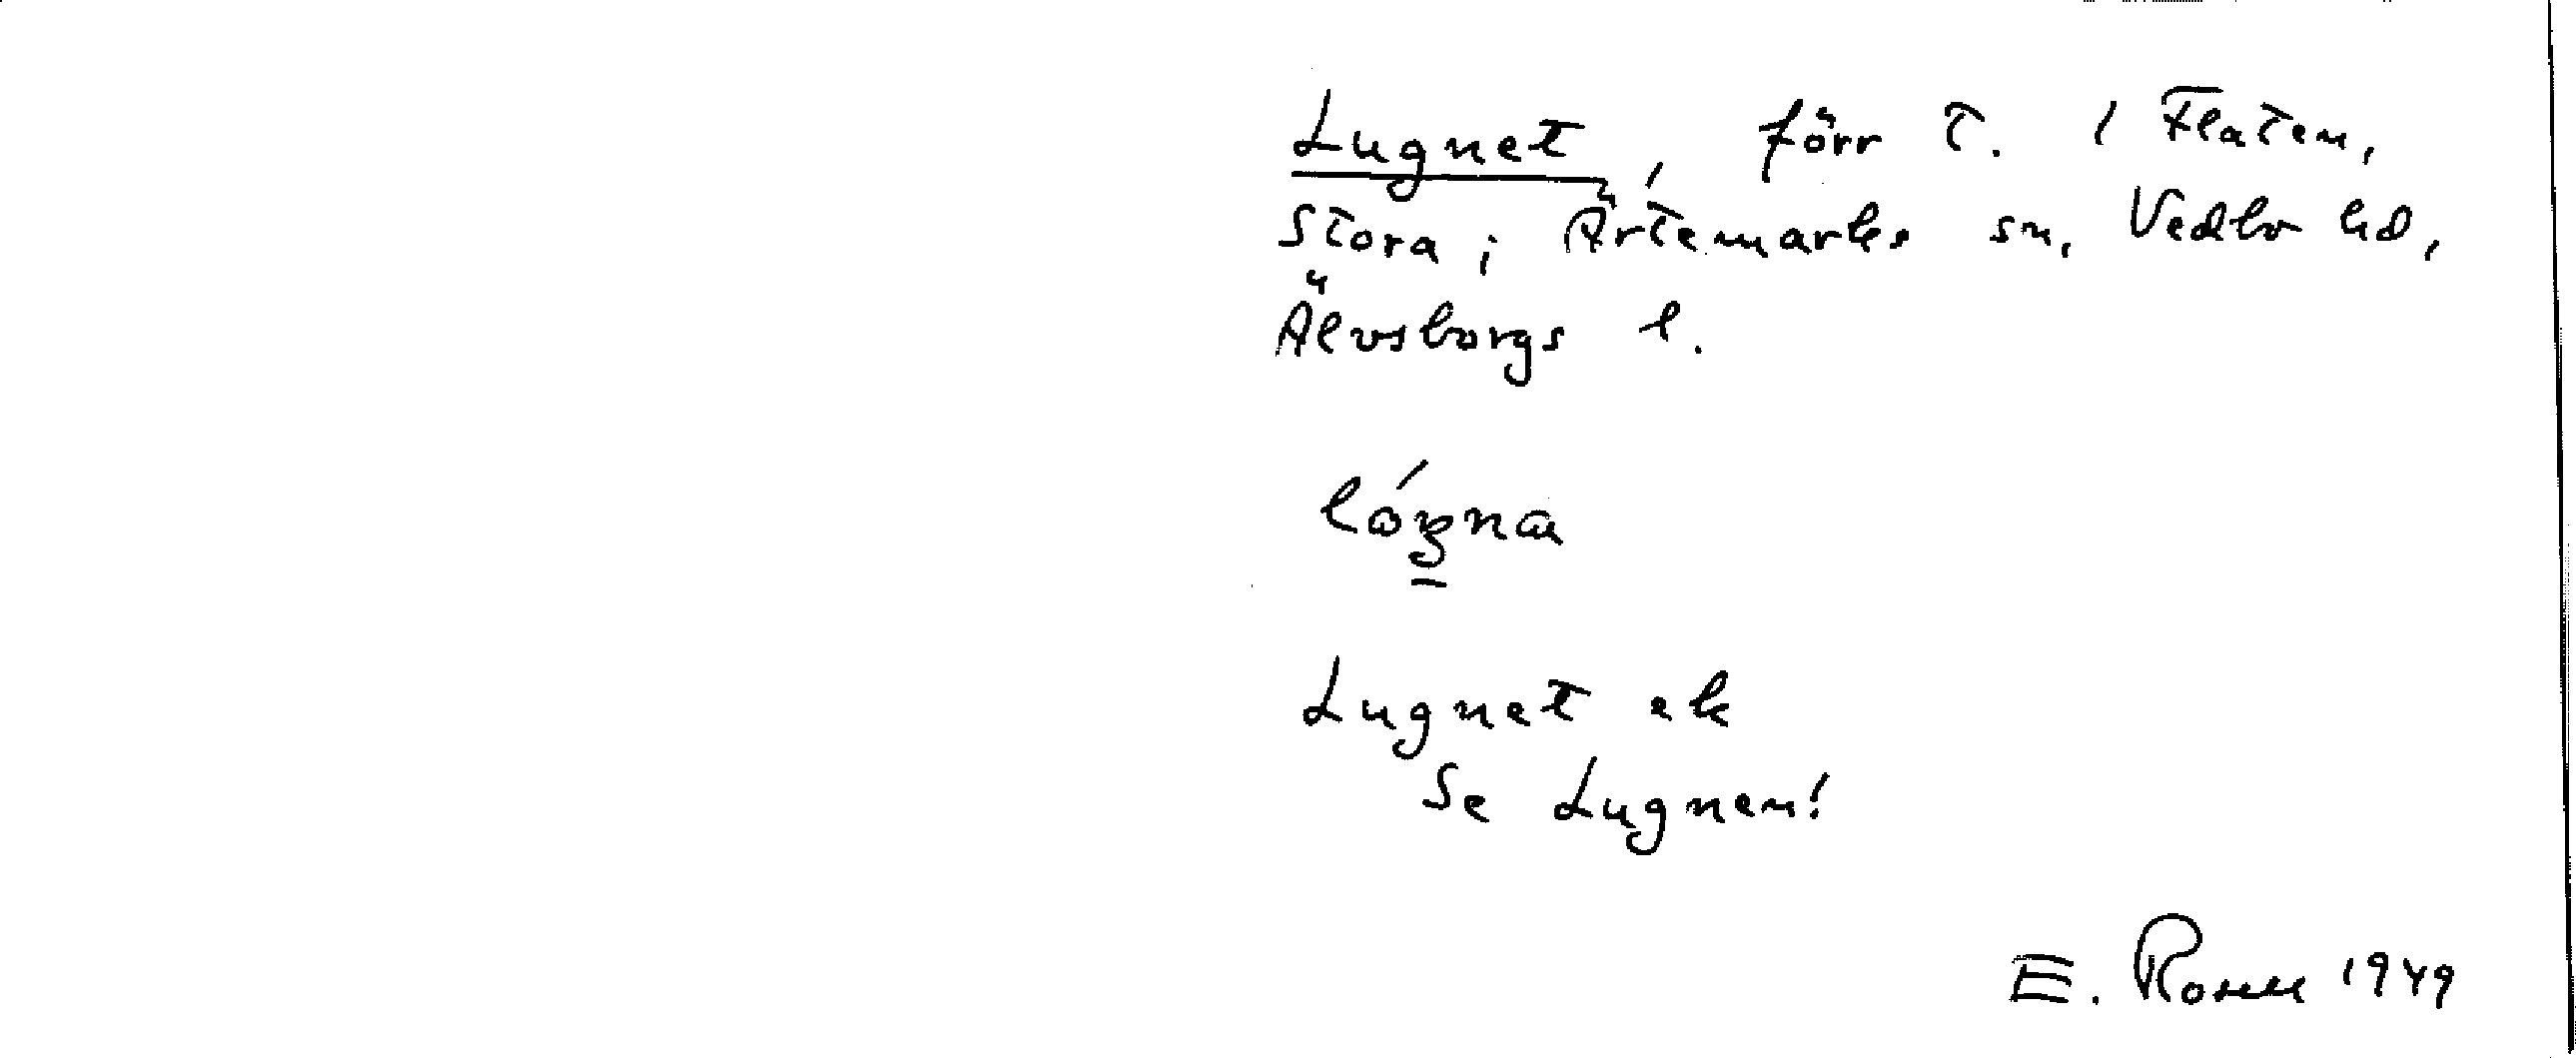 Lugnet, förr t. / Flaten,
Stora i Ärtemarks sn, Vedbo hd,
Älvsborgs l.
lóʒna
Lugnet ek
Se Lugnen!
E. Rosell 1949